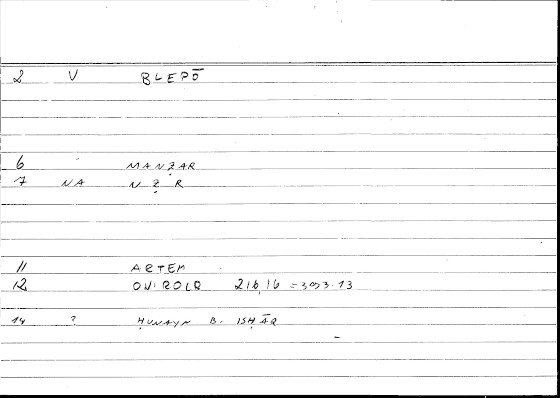 2 V BLEPŌ
6 MANẒAR
7 NA NẒR
11 ARTEM
12 ONIROCR 216,16 = 393.13
14 ? ḤUNAYN B. ISḤĀQ